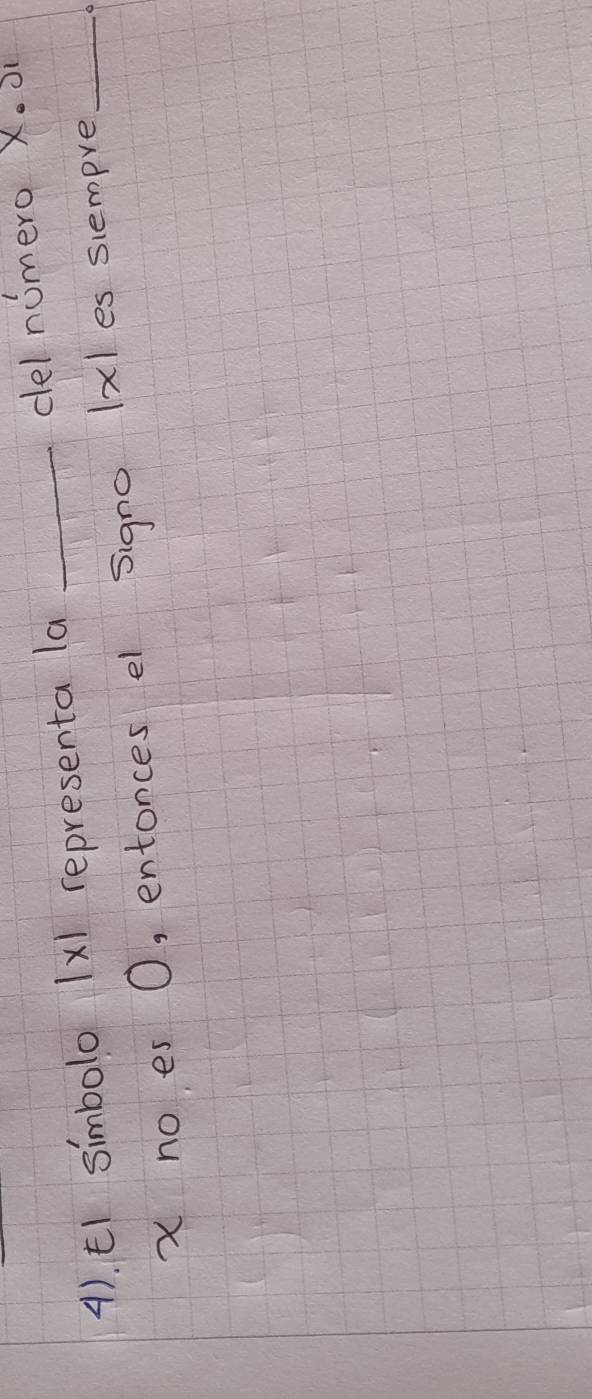 4). El símbolo |x| representa la ______ del número x. Si
x no es 0, entonces el signo |x| es siempre ____.